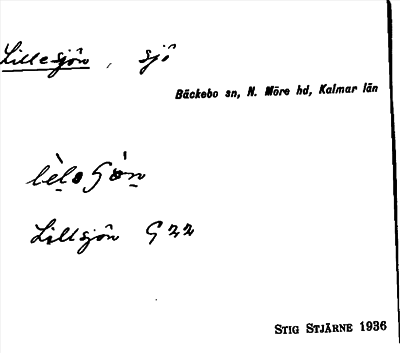 Lillesjön, sjö
Bäckebo sn, N. Möre hd, Kalmar län
Lillsjön G 22
STIG STJÄRNE 1936